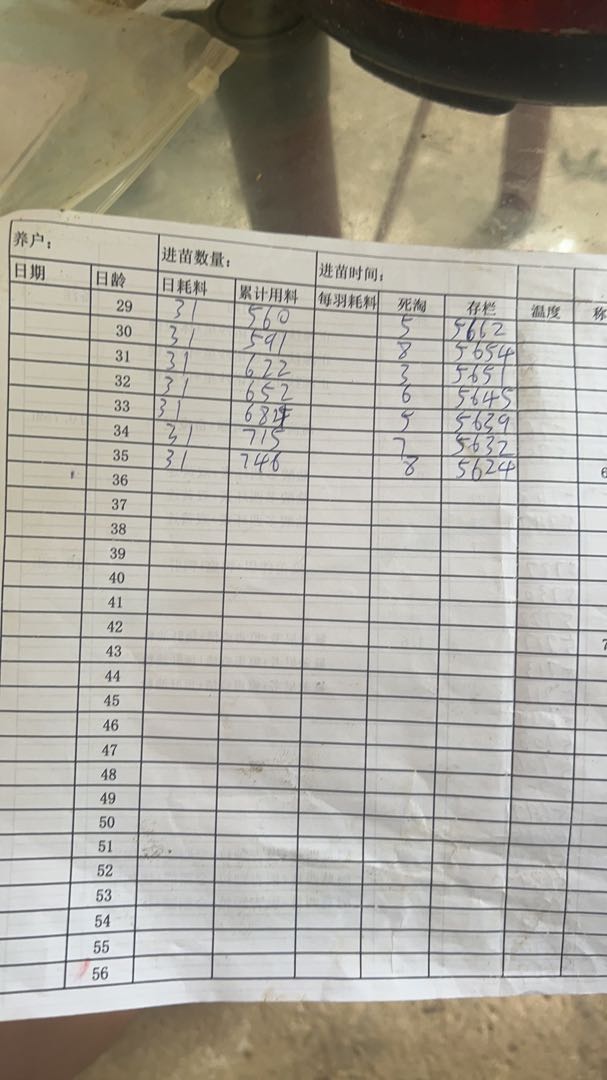 养户： 进苗数量： 进苗时间：
日期 日龄 日耗料 累计用料 每羽耗料 死淘 存栏 温度 称
29 31 560 5 5662
30 31 591 8 5654
31 31 622 3 5651
32 31 652 6 5645
33 31 5 5639
34 31 715 7 5632
35 31 746 8 5624 6
36
37
38
39
40
41
42
43 7
44
45
46
47
48
49
50
51
52
53
54
55
56